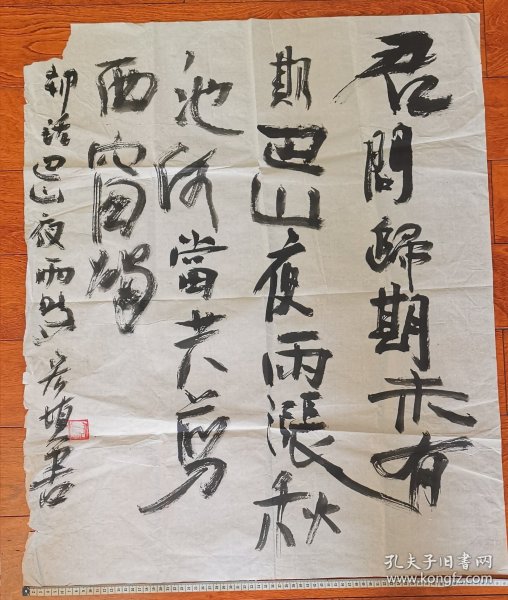 君問歸期未有
期巴山夜雨漲秋
池何當共剪
西窗燭
却話巴山夜雨時
書
孔夫子旧书网
www.kongfz.com